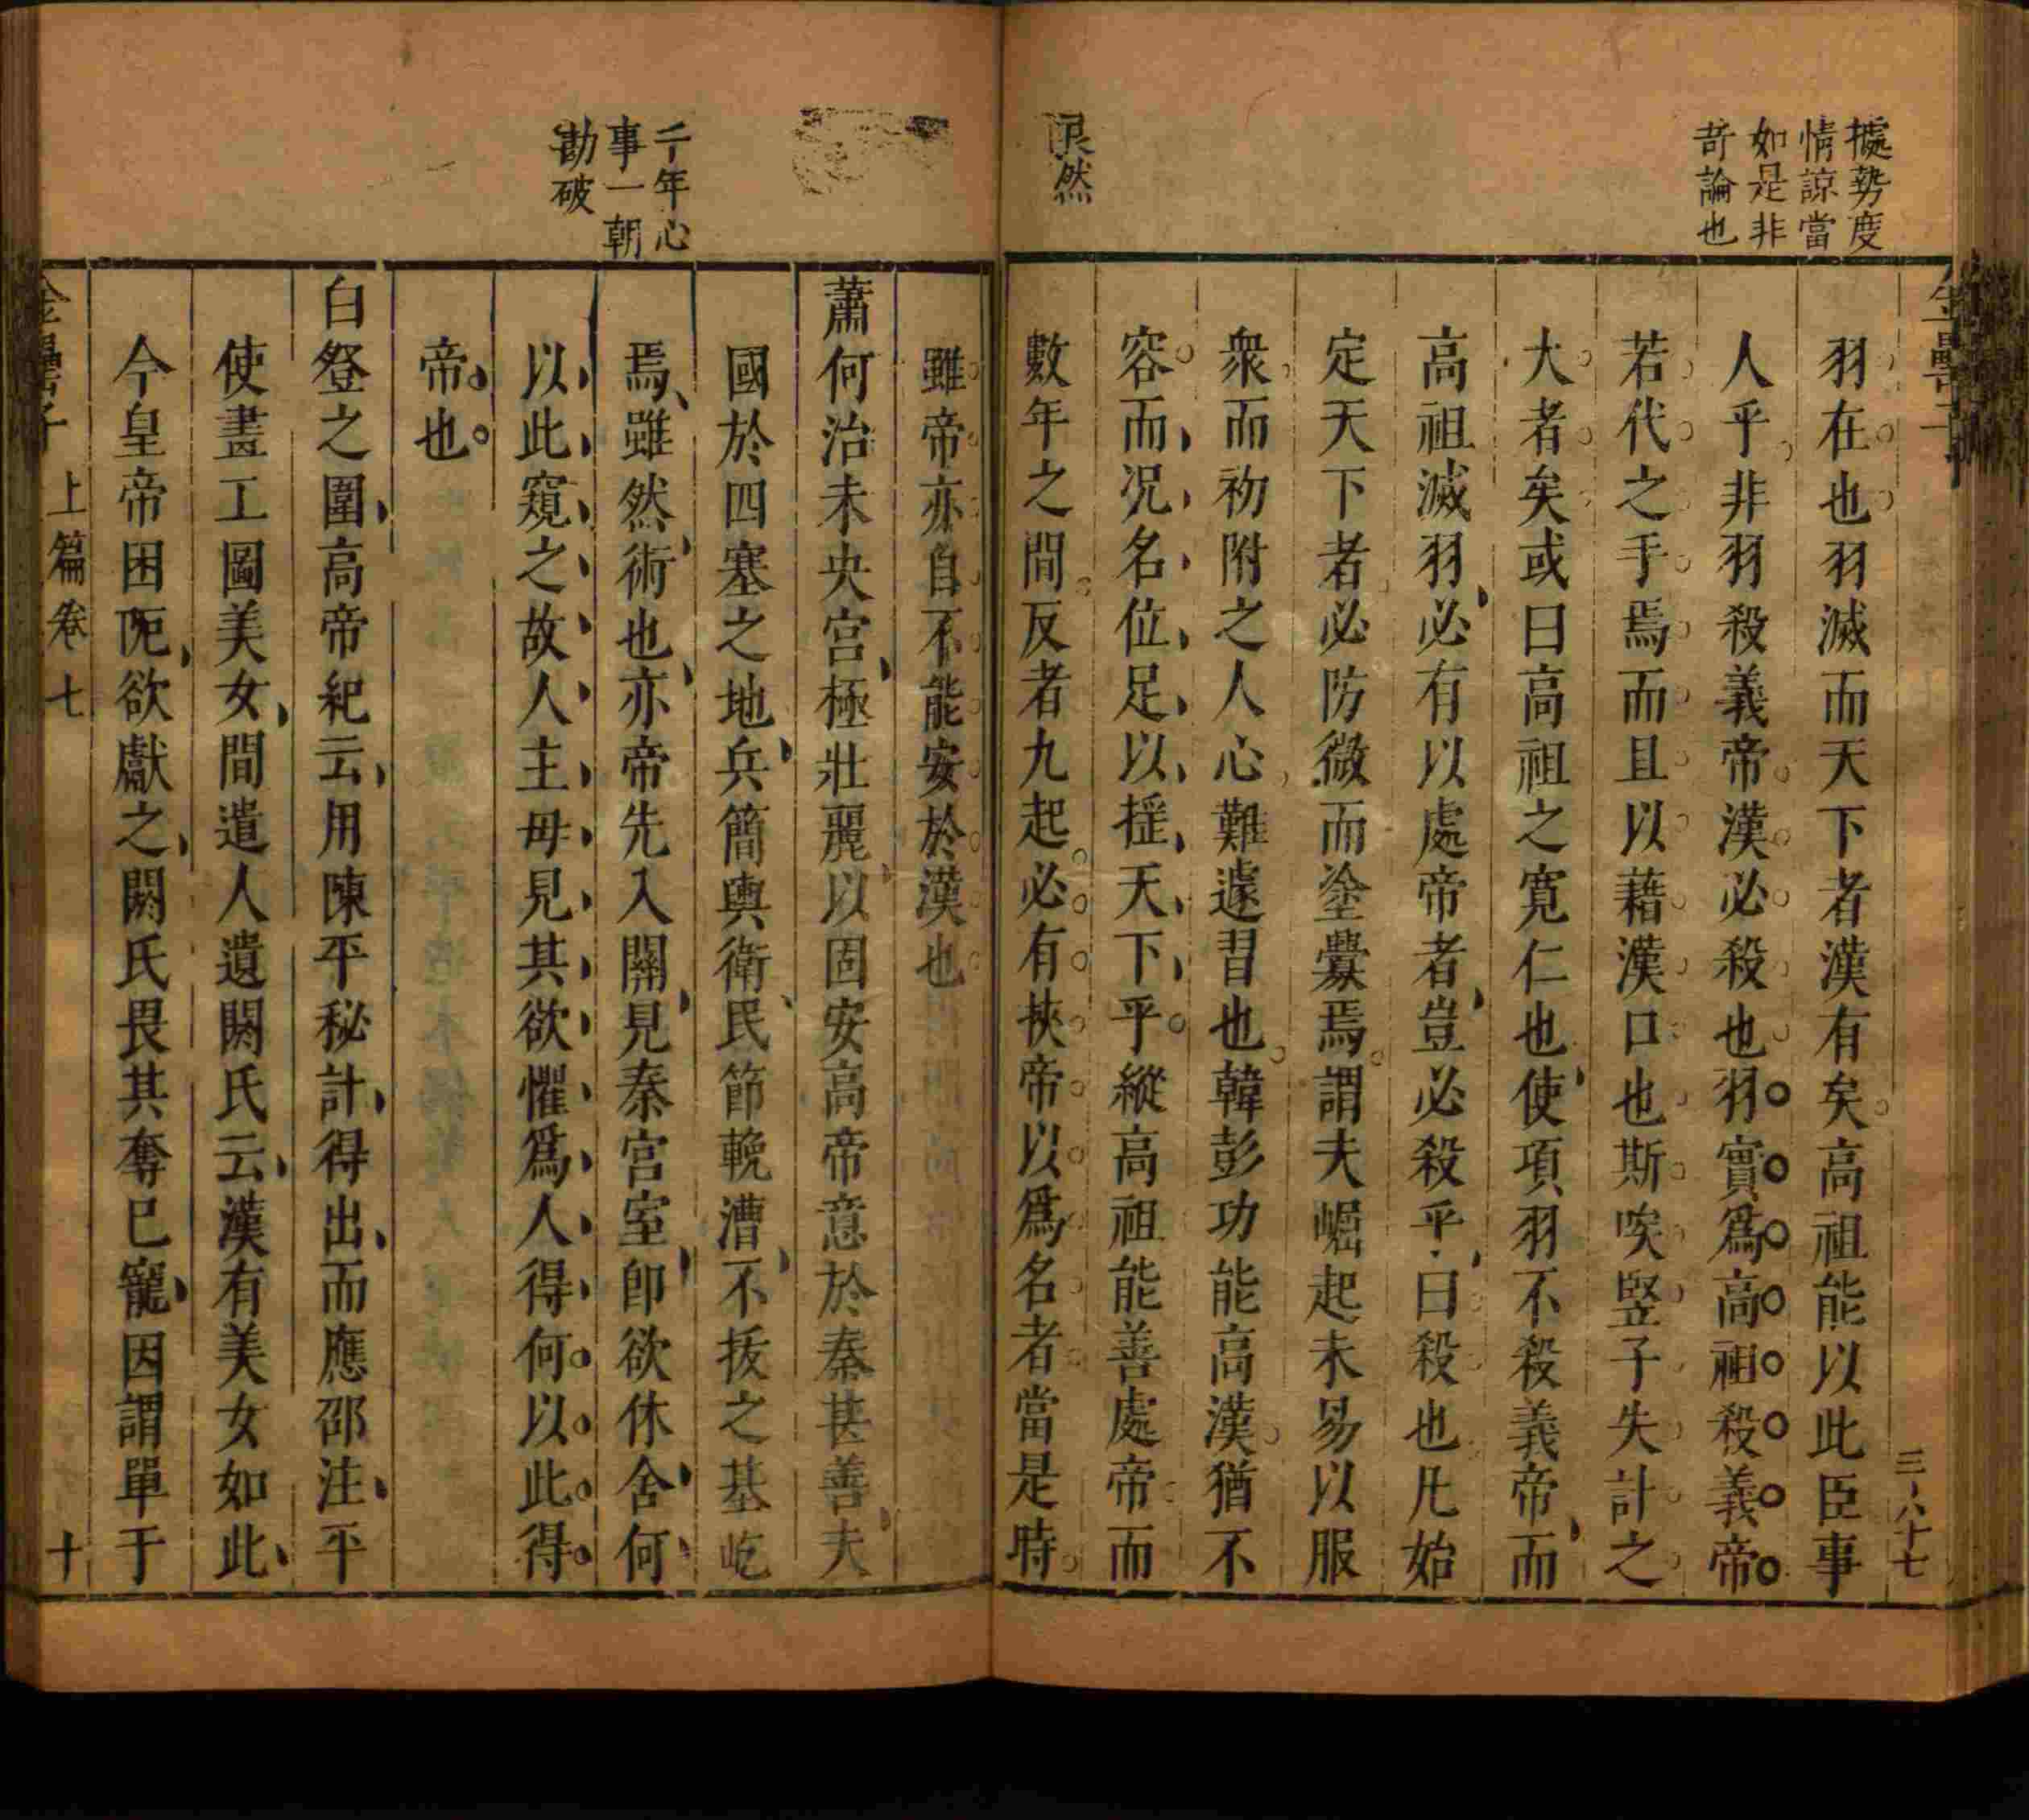 據勢度
情諒當
如是非
苛論也
金罍子
三八十七
羽在也羽滅而天下者漢有矣高祖能以此臣事
人乎非羽殺義帝漢必殺也羽實爲高祖殺義帝
若代之手焉而且以藉漢口也斯唉竪子失計之
大者矣或曰高祖之寬仁也使項羽不殺義帝而
高祖滅羽必有以處帝者豈必殺乎曰殺也凡始
定天下者必防微而塗釁焉謂夫崛起未易以服
衆而初附之人心難遽習也韓彭功能高漢猶不
容而况名位足以揺天下乎縱高祖能善處帝而
數年之間反者九起必有挾帝以爲名者當是時
然
雖帝亦自不能安於漢也
千年心
事一朝
勘破
蕭何治未央宫極壯麗以固安高帝意於秦甚善夫
國於四塞之地兵簡輿衛民節輓漕不拔之基屹
焉雖然術也亦帝先入關見秦宫室卽欲休舍何
以此窺之故人主毋見其欲懼爲人得何以此得
帝也
白登之圍高帝紀云用陳平秘計得出而應邵注平
使畫工圖美女間遣人遺閼氏云漢有美女如此
今皇帝困阨欲獻之閼氏畏其奪已寵因謂單于
金罍子
上篇卷七
十